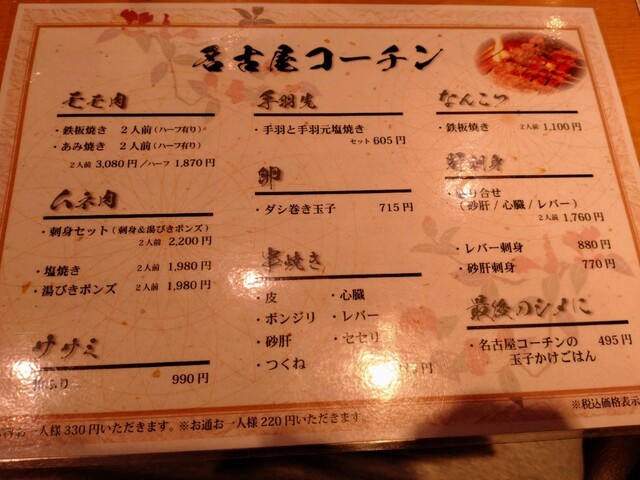 名古屋コーチン
モモ肉
・鉄板焼き 2人前(ハーフ有り)
・あみ焼き 2人前(ハーフ有り)
2人前 3,080円/ハーフ 1,870円
ムネ肉
・刺身セット(刺身&湯びきポンズ)
2人前 2,200円
・塩焼き 2人前 1,980円
・湯びきポンズ 2人前 1,980円
ササミ
990円
手羽先
・手羽と手羽元塩焼き
セット 605円
卵
・ダシ巻き玉子 715円
串焼き
・皮 ・心臓
・ボンジリ ・レバー
・砂肝 ・セセリ
・つくね
円
なんこつ
・鉄板焼き 2人前 1,100円
刺身
り合せ
(砂肝/心臓/レバー)
2人前 1,760円
・レバー刺身 880円
・砂肝刺身 770円
最後のシメに
・名古屋コーチンの 495円
玉子かけごはん
※税込価格表示
お一人様330円いただきます。※お通お一人様220円いただきます。